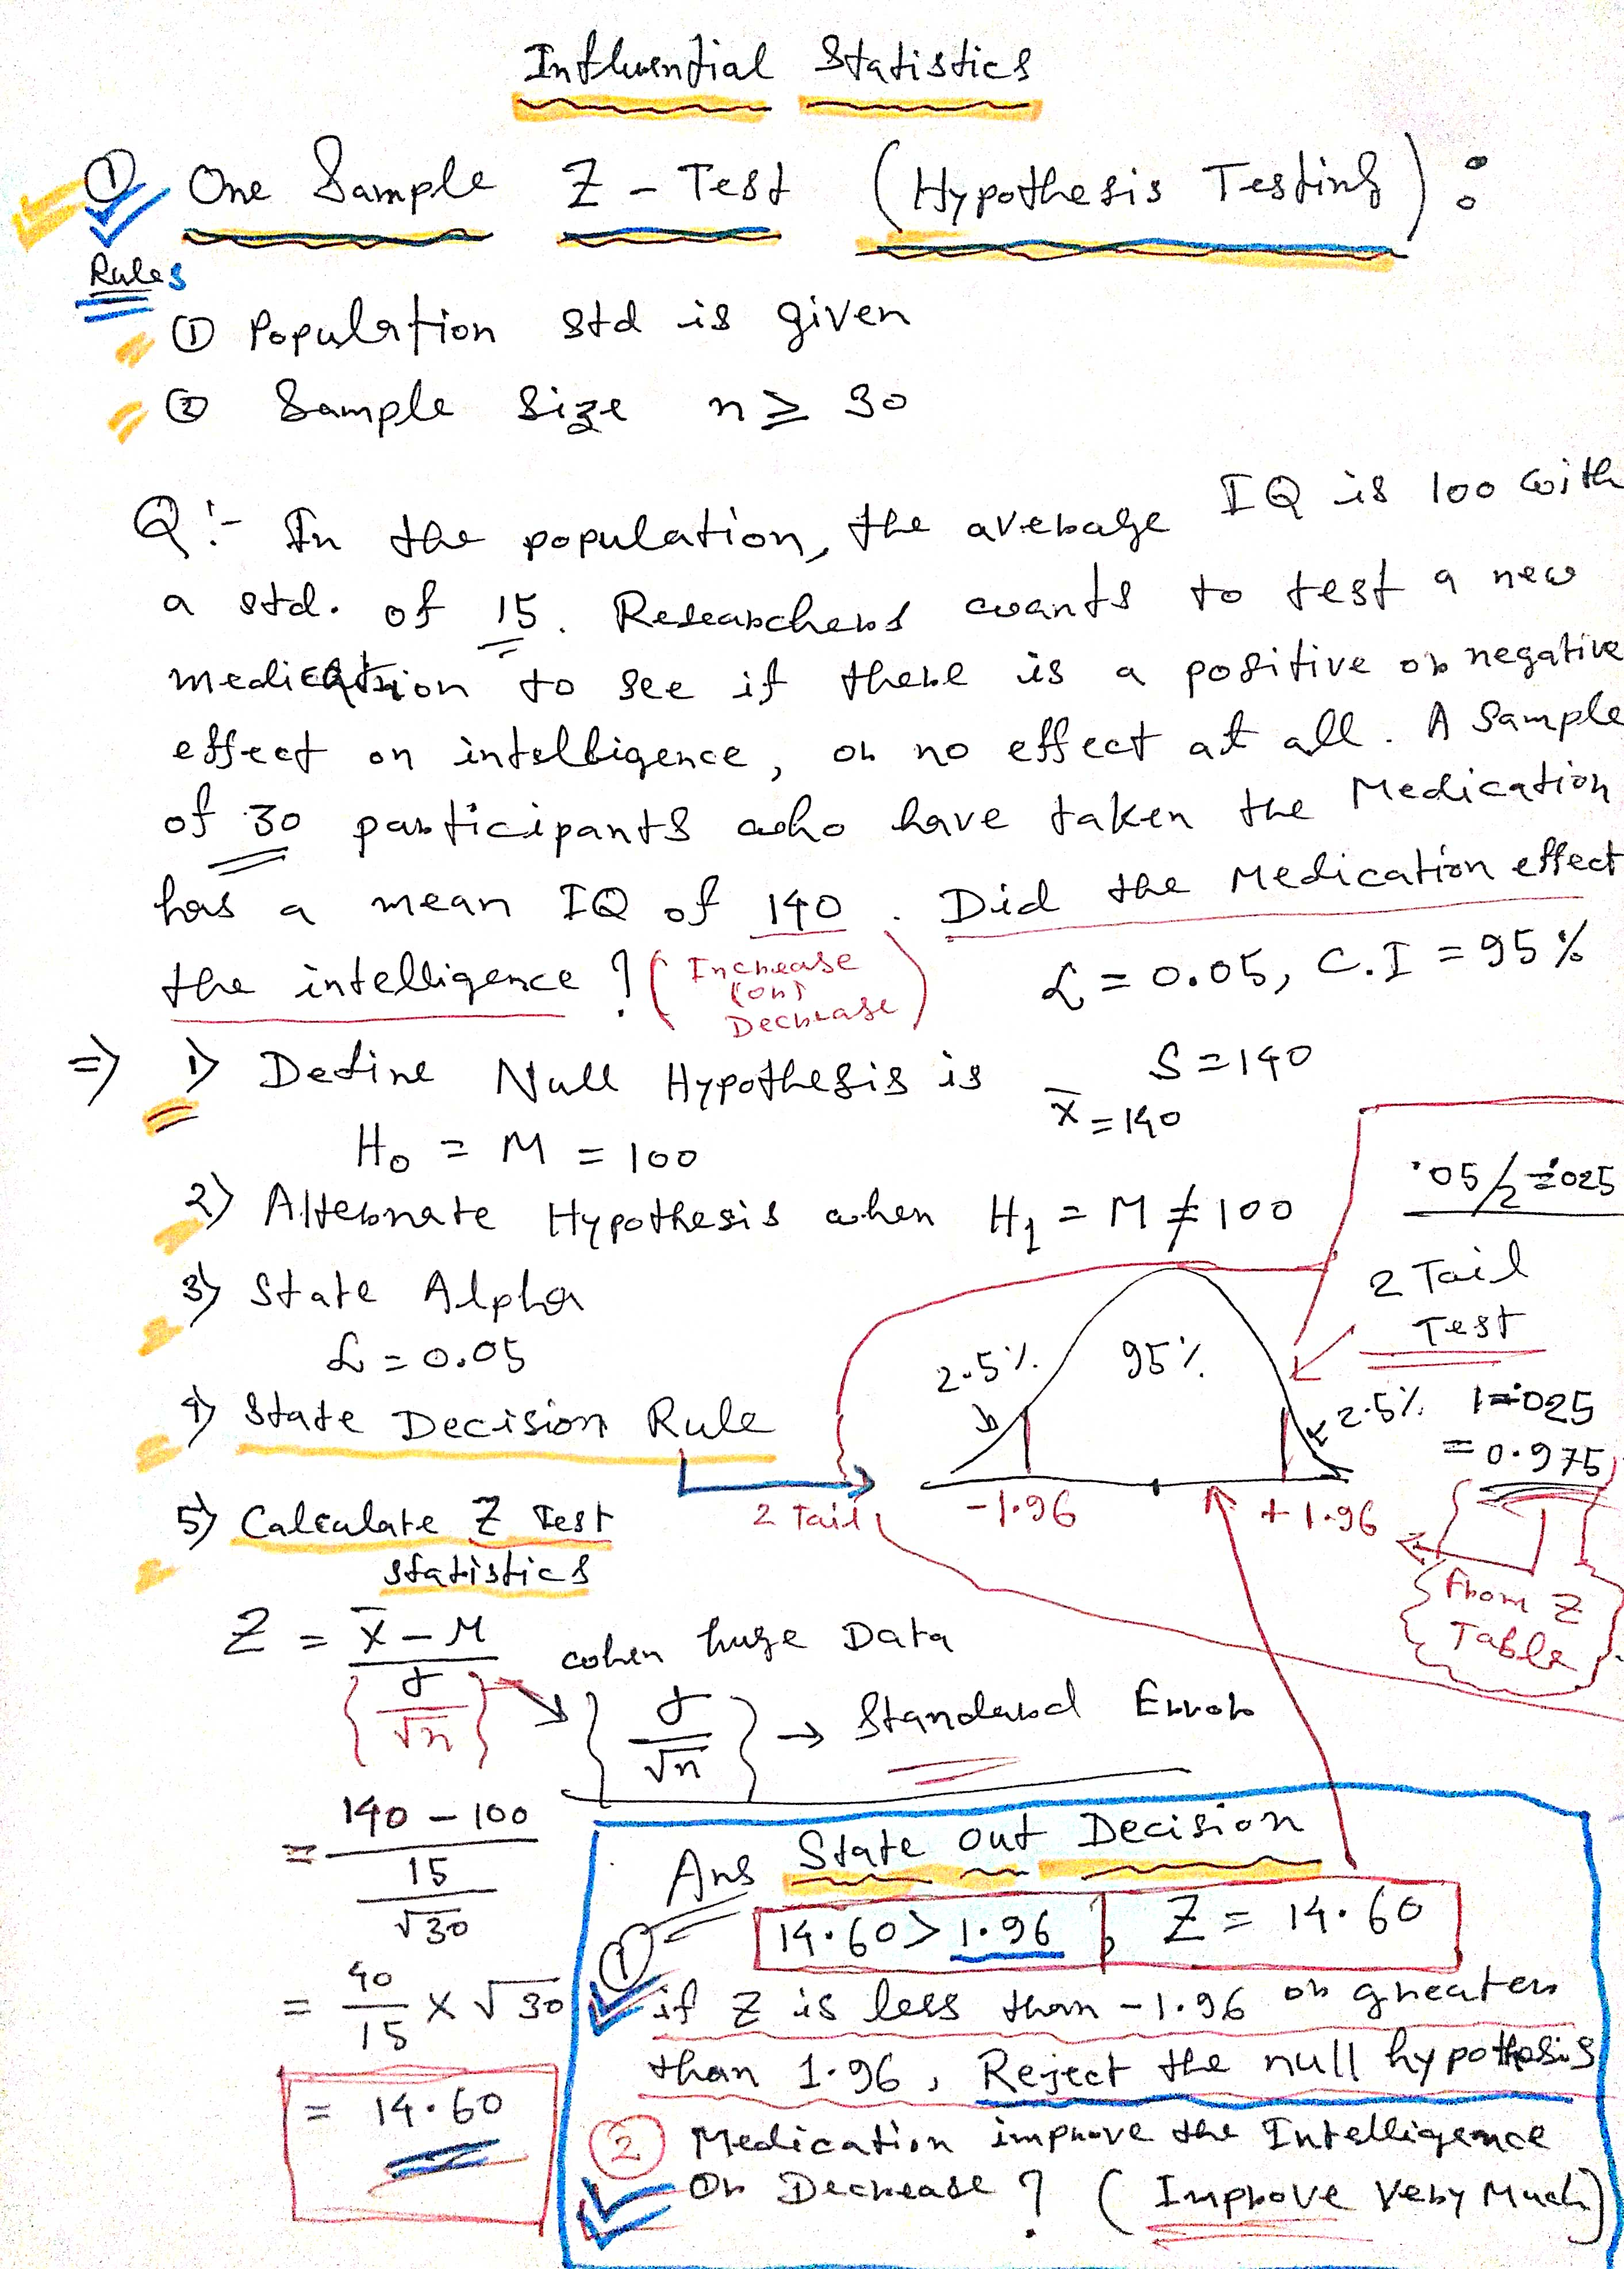 Influential Statistics
① One Sample Z - Test (Hypothesis Testing) :
Rules
① Population std is given
② Sample size n ≥ 30
Q:- In the population, the average IQ is 100 with
a std. of 15. Researchers wants to test a new
medication to see if there is a positive or negative
effect on intelligence, or no effect at all. A Sample
of 30 participants who have taken the Medication
has a mean IQ of 140. Did the Medication effect
the intelligence ? (Increase (or) Decrease) α = 0.05, C.I = 95%
⇒ 1) Define Null Hypothesis is
S = 140
x̄ = 140
H₀ = M = 100
.05/2 = .025
2) Alternate Hypothesis when H₁ = M ≠ 100
2 Tail
Test
3) State Alpha
α = 0.05
2.5% 95% 2.5%
1 - .025
= 0.975
4) State Decision Rule
2 Tail -1.96 +1.96
From Z
Table
5) Calculate Z Test
statistics
Z = x̄ - M / {σ/√n} when huge Data
{σ/√n} → Standard Error
= 140 - 100 / 15/√30
= 40/15 × √30
= 14.60
Ans State out Decision
14.60 > 1.96 , Z = 14.60
① if Z is less than -1.96 or greater
than 1.96, Reject the null hypothesis
② Medication improve the Intelligence
Or Decrease ? (Improve Very Much)